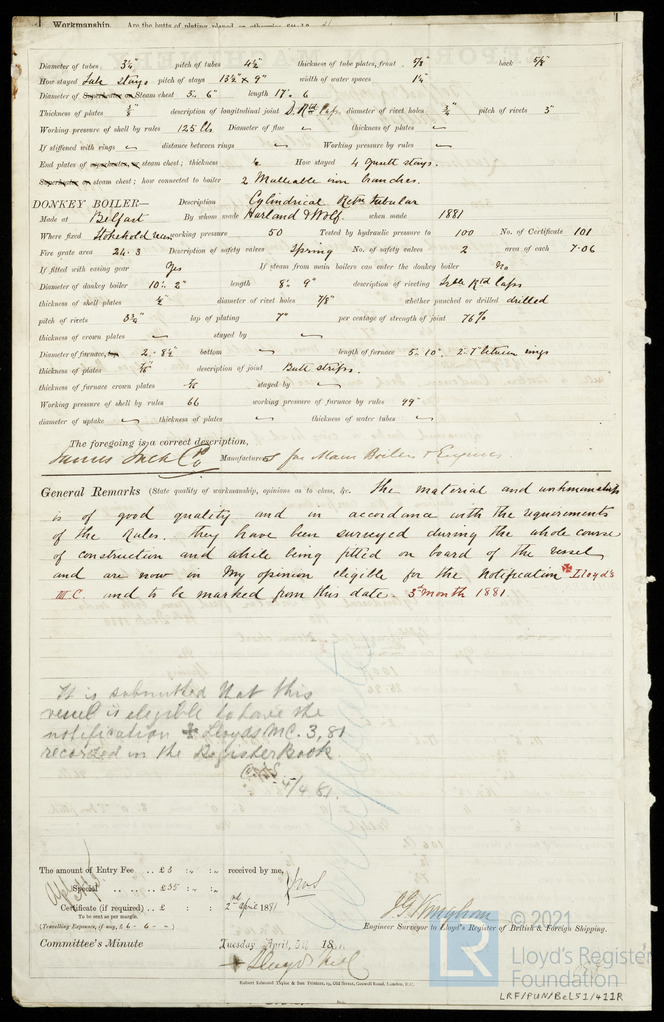 Workmanship. Are the butts of plating planed or otherwise
Diameter of tubes 3¼" pitch of tubes 4½ thickness of tube plates, front 5/8" back 5/8"
How stayed Tube stays pitch of stays 13½" x 9" width of water spaces 1¼"
Diameter of Superheater or Steam chest 3.. 6" length 17.. 6
Thickness of plates description of longitudinal joint D. Rtd Laps, diameter of rivet holes ¾" pitch of rivets 3"
Working pressure of shell by rules 125 lbs Diameter of flue thickness of plates
If stiffened with rings distance between rings Working pressure by rules
End plates of superheater, or steam chest; thickness How stayed 4 gusett stays.
Superheater or steam chest; how connected to boiler 2 Malleable iron branches.
DONKEY BOILER— Description Cylindrical Retn Tubular
Made at Belfast By whom made Harland & Wolf. when made 1881
Where fixed Stokehold working pressure 50 Tested by hydraulic pressure to 100 No. of Certificate 101
Fire grate area 24.3 Description of safety valves Spring No. of safety valves 2 area of each 7.06
If fitted with easing gear Yes If steam from main boilers can enter the donkey boiler No
Diameter of donkey boiler 10.. 2" length 8.. 9" description of riveting Dble Rtd Laps
thickness of shell plates ½" diameter of rivet holes 7/8" whether punched or drilled drilled
pitch of rivets 3¾" lap of plating 7" per centage of strength of joint 76%
thickness of crown plates stayed by
Diameter of furnace, top 2.. 8½ bottom length of furnace 5.. 10" 2-7 between rings
thickness of plates description of joint Butt strips.
thickness of furnace crown plates stayed by
Working pressure of shell by rules 66 working pressure of furnace by rules 99
diameter of uptake thickness of plates thickness of water tubes
The foregoing is a correct description,
James Jack & Co Manufacturers for Main Boilers & Engines
General Remarks (State quality of workmanship, opinions as to class, &c. The material and workmanship
is of good quality and in accordance with the requirements
of the Rules. they have been surveyed during the whole course
of construction and while being fitted on board of the vessel
and are now in my opinion eligible for the notification ✠Lloyd's
M.C. and to be marked from this date. 3d month 1881.
It is submitted that this
vessel is eligible to have the
notification ✠ Lloyds M.C. 3,81
recorded in the Register Book
5/4/81.
The amount of Entry Fee .. £3 : .. : .. received by me,
Special .. .. £35 : .. : ..
Certificate (if required) .. £ : .. : .. 2nd April 1881
To be sent as per margin.
(Travelling Expenses, if any, £ 6 - 6 - - )
Engineer Surveyor to Lloyd's Register of British & Foreign Shipping.
Committee's Minute Tuesday April, 5th 18
+ Lloyds M.C
Robert Edmund Taylor & Son Printers, 19, Old Street, Goswell Road, London, E.C.
© 2021
LR Lloyd's Register
Foundation
LRF/PUN/BEL51/411R